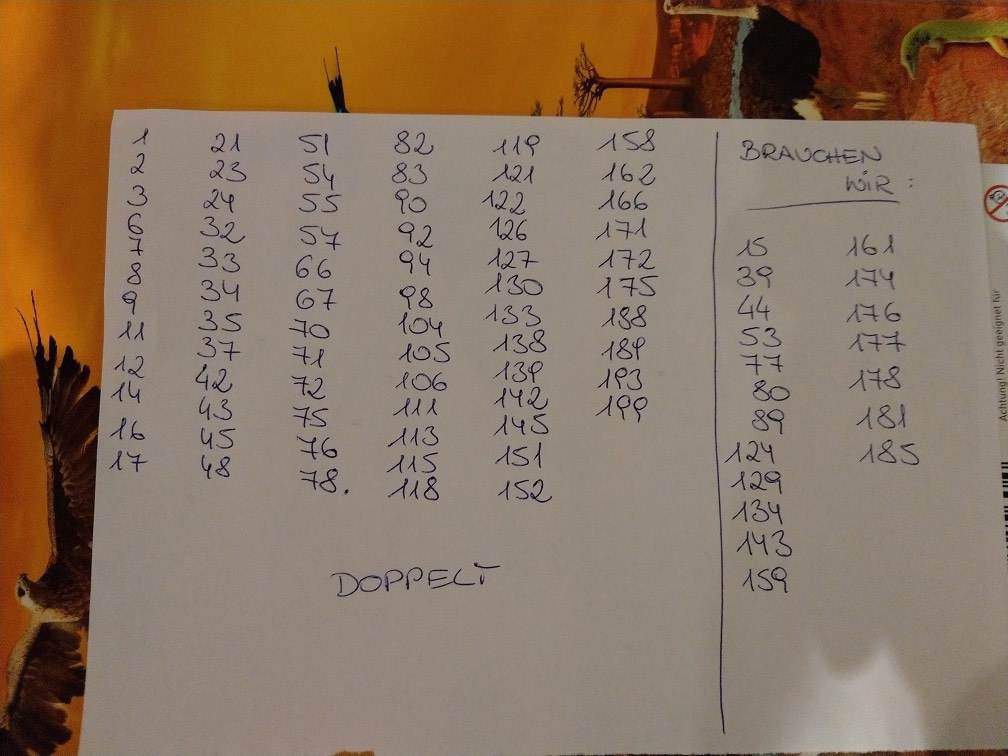 1
2
3
6
7
8
9
11
12
14
16
17
21
23
24
32
33
34
35
37
42
43
45
48
51
54
55
57
66
67
70
71
72
75
76
78.
82
83
90
92
94
98
104
105
106
111
113
115
118
119
121
122
126
127
130
133
138
139
142
145
151
152
158
162
166
171
172
175
188
189
193
199
DOPPELT
BRAUCHEN
WIR:
15
39
44
53
77
80
89
124
129
134
143
159
161
174
176
177
178
181
185
Achtung! Nicht geeignet für